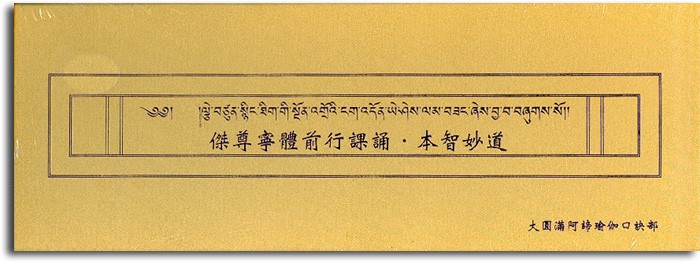 ༄༅། །ལྕེ་བཙུན་སྙིང་ཐིག་གི་སྔོན་འགྲོའི་ངག་འདོན་ཡེ་ཤེས་ལམ་བཟང་ཞེས་བྱ་བ་བཞུགས་སོ། །
傑尊寧體前行課誦·本智妙道
大圓滿阿諦瑜伽口訣部